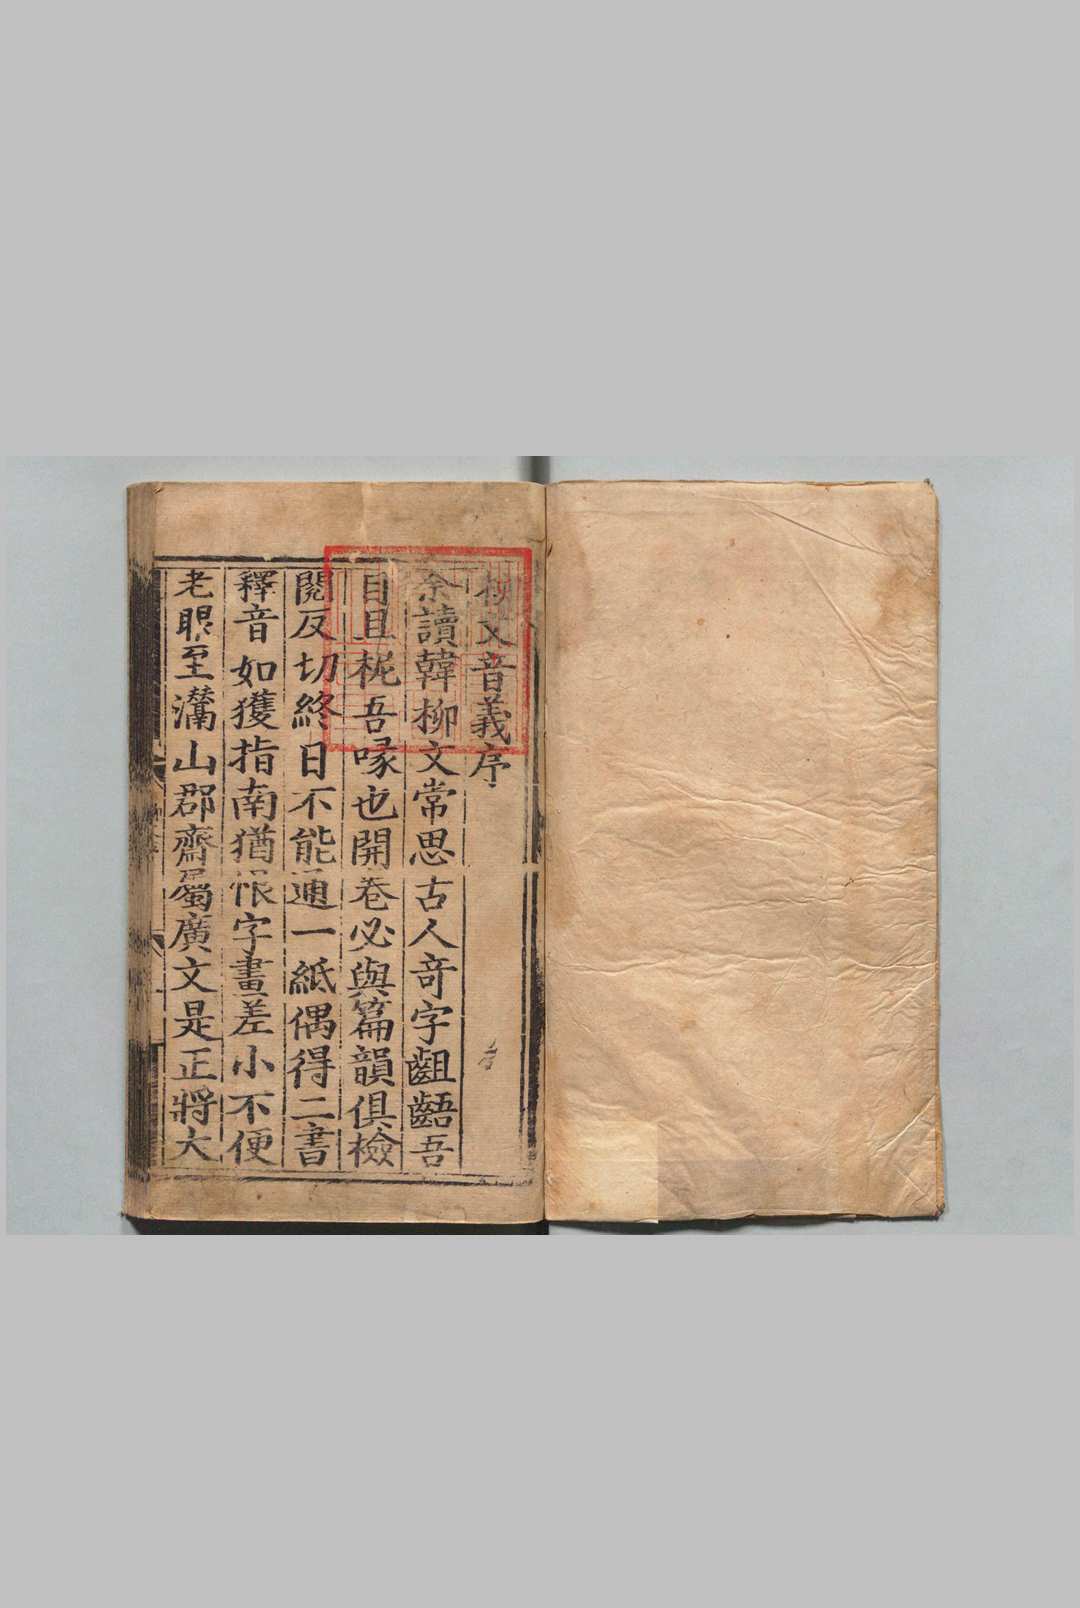 柳文音義序
余讀韓柳文常思古人奇字齟齬吾
目且柅吾喙也開卷必與篇韻俱檢
閱反切終日不能通一紙偶得二書
釋音如獲指南猶恨字畫差小不便
老眼至灊山郡齋屬廣文是正將大